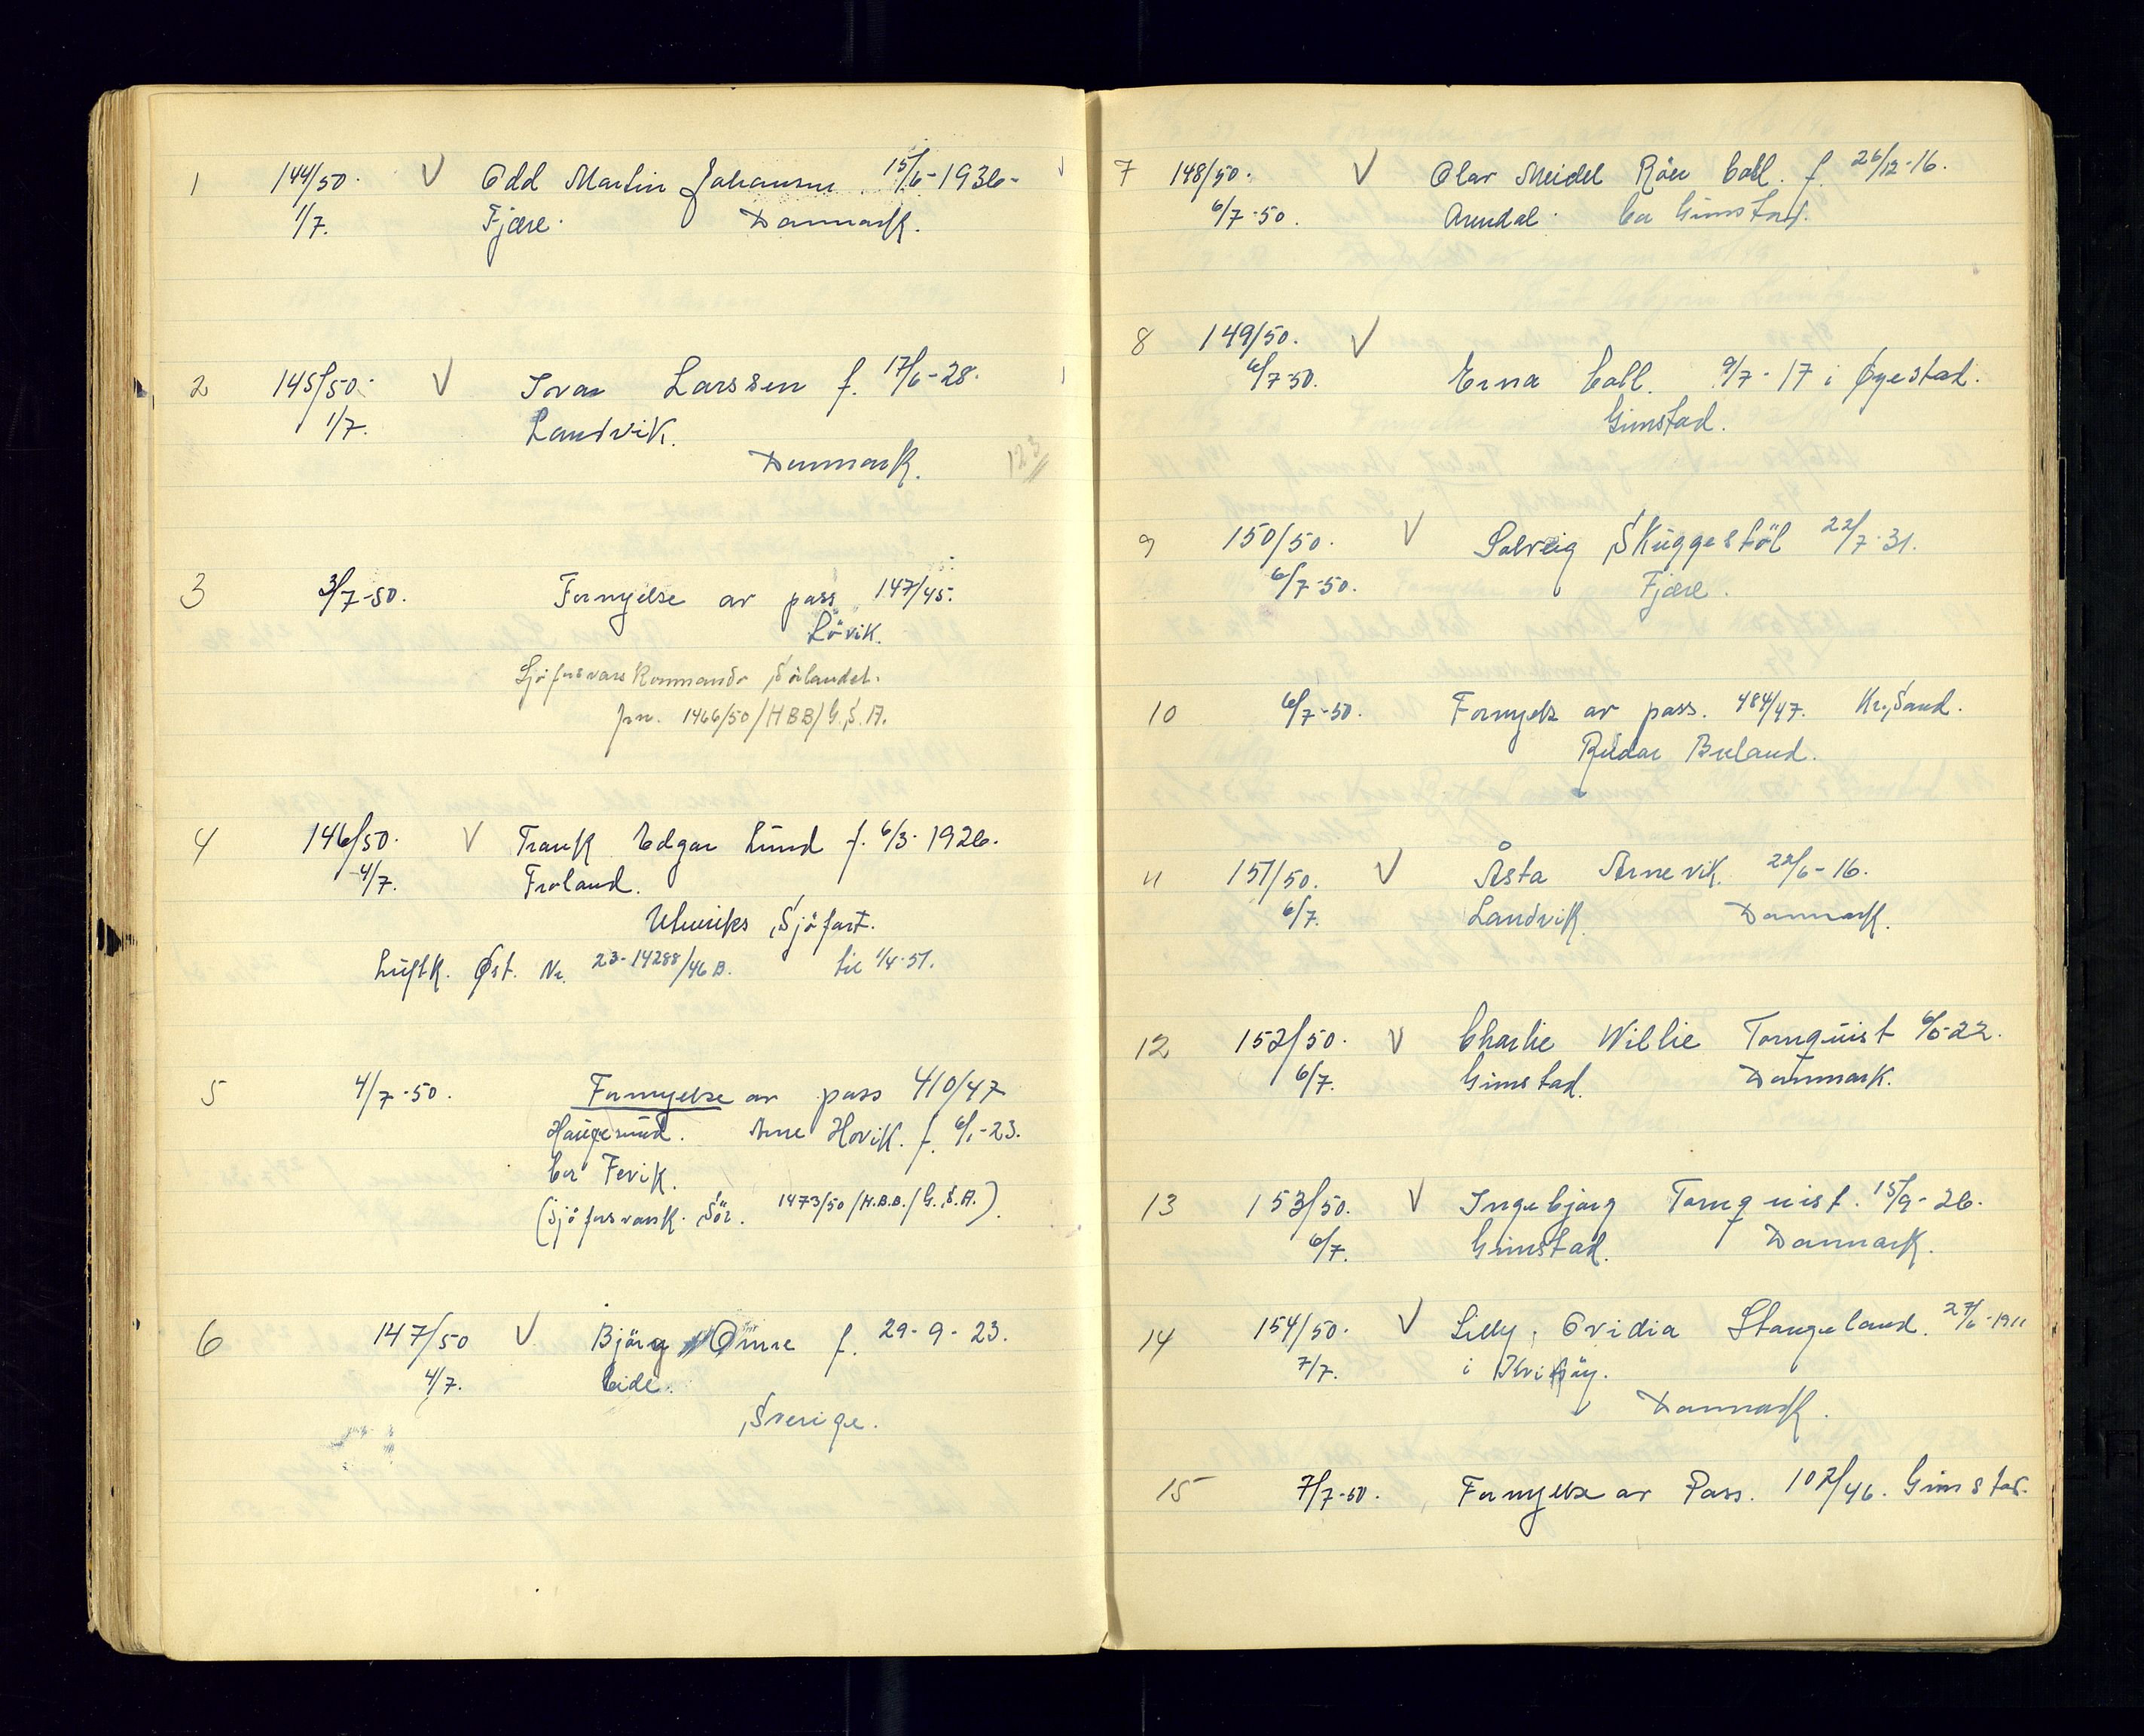 1 144/50. V Odd Martin Johansen. 15/6-1936-
1/7. Fjære. Danmark.
2 145/50. V Ivar Larssen f. 17/6-28.
1/7. Landvik.
Danmark.
123
3 3/7-50. Fornyelse av pass 147/45.
Lövik.
Sjøforsvars Kommando Sörlandet.
jrn. 1466/50/HBB/G.S.A.
4 146/50. V Frank Edgar Lund f. 6/3-1926.
4/7. Froland.
Utenriks Sjöfart.
Luftk. Øst. Nr. 23-14288/46 B. til 1/4-51.
5 4/7-50. Fornyelse av pass 410/47
Haugesund. Arne Hovik. f. 6/1-23.
bor Fevik.
(Sjöforsvark. Sör. 1473/50/H.B.B./G.S.A.).
6 147/50 V Bjärg Omre f. 29-9-23.
4/7. Eide.
Sverige.
7 148/50. V Olav Meidel Röer Coll. f. 26/12-16.
6/7-50. Arendal. bor Grimstad.
8 149/50. V
6/7-50. Erna Coll. 9/7-17 i Øyestad.
Grimstad.
9 150/50. V Solveig Skuggestöl 22/7-31.
6/7-50. Fjære.
10 6/7-50. Fornyelse av pass. 484/47. Kr.Sand.
Reidar Buland.
11 151/50. V Åsta Arnevik. 22/6-16.
6/7. Landvik. Danmark.
12 152/50. V Charlie Willie Tornquist 6/5-22.
6/7. Grimstad. Danmark.
13 153/50. V Ingebjørg Tornquist. 15/9-26.
6/7. Grimstad. Danmark.
14 154/50. V Lilly, Ovidia Stangeland. 27/6-1911
7/7. i
Danmark.
15 7/7-50. Fornyelse av Pass. 102/46. Grimstad.